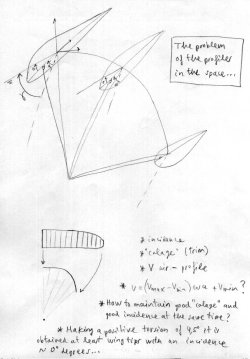 The problem
of the profiles
in the space...
* incidence
* "calage" (Trim)
* V air - profile
* v = (Vmax - Vmin) cos α + Vmin ?
* How to maintain good "calage" and
good incidence at the same time?
* Making a positive torsion of 45° it is
obtained at least wing tips with an incidence
~ 0° degrees...